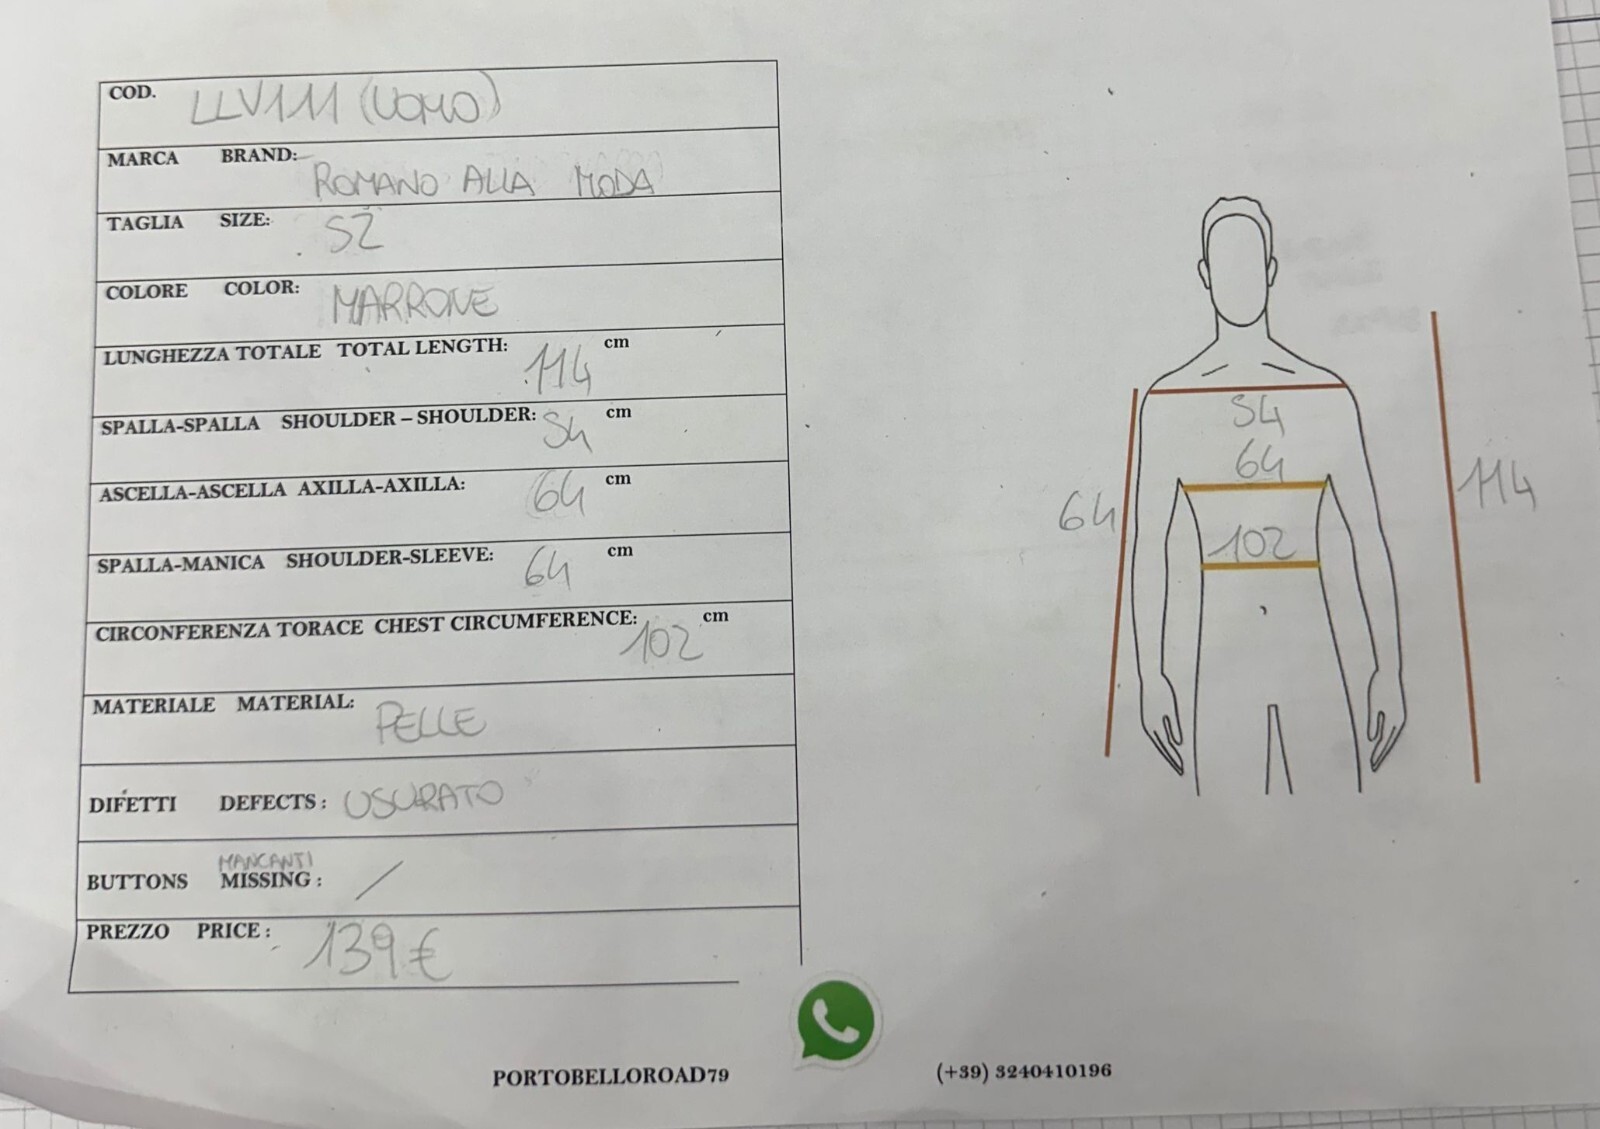 COD. LLV111 (UOMO)
MARCA BRAND: ROMANO ALLA MODA
TAGLIA SIZE: 52
COLORE COLOR: MARRONE
LUNGHEZZA TOTALE TOTAL LENGTH: 114 cm
SPALLA-SPALLA SHOULDER – SHOULDER: 54 cm
ASCELLA-ASCELLA AXILLA-AXILLA: 64 cm
SPALLA-MANICA SHOULDER-SLEEVE: 64 cm
CIRCONFERENZA TORACE CHEST CIRCUMFERENCE: 102 cm
MATERIALE MATERIAL: PELLE
DIFETTI DEFECTS: USURATO
MANCANTI
BUTTONS MISSING: /
PREZZO PRICE: 139€
54
64
64
114
102
PORTOBELLOROAD79 (+39) 3240410196